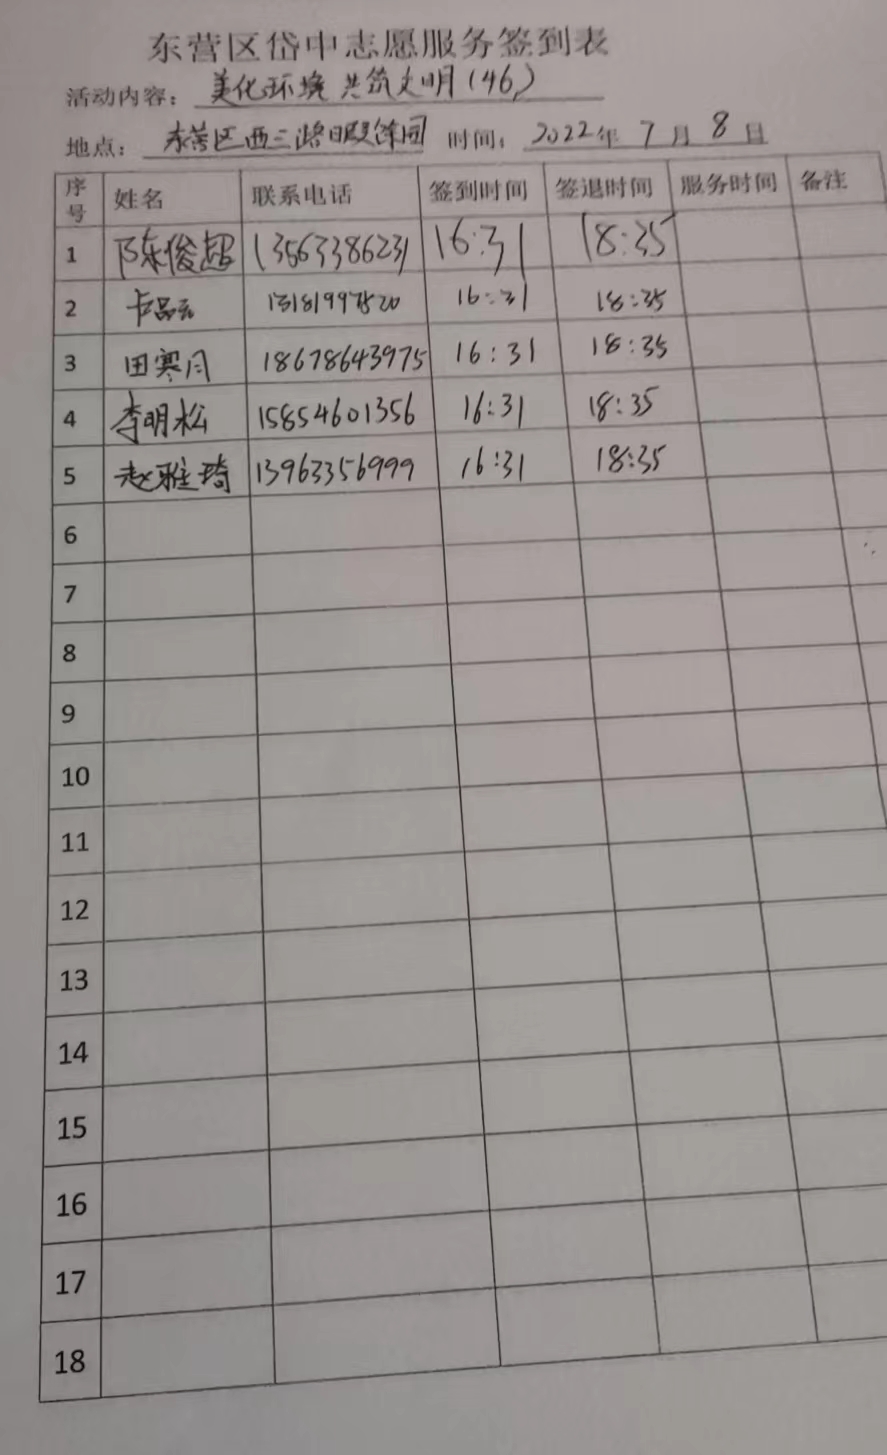 东营区岱中志愿服务签到表
活动内容：美化环境 共筑文明（46）
地点：东营区西三路 时间：2022年7月8日
序号 姓名 联系电话 签到时间 签退时间 服务时间 备注
1 陈俊超 13563386231 16:31 18:35
2 16:31 18:35
3 田寒月 18678643975 16:31 18:35
4 李明松 15854601356 16:31 18:35
5 赵雅琦 13963356999 16:31 18:35
6
7
8
9
10
11
12
13
14
15
16
17
18